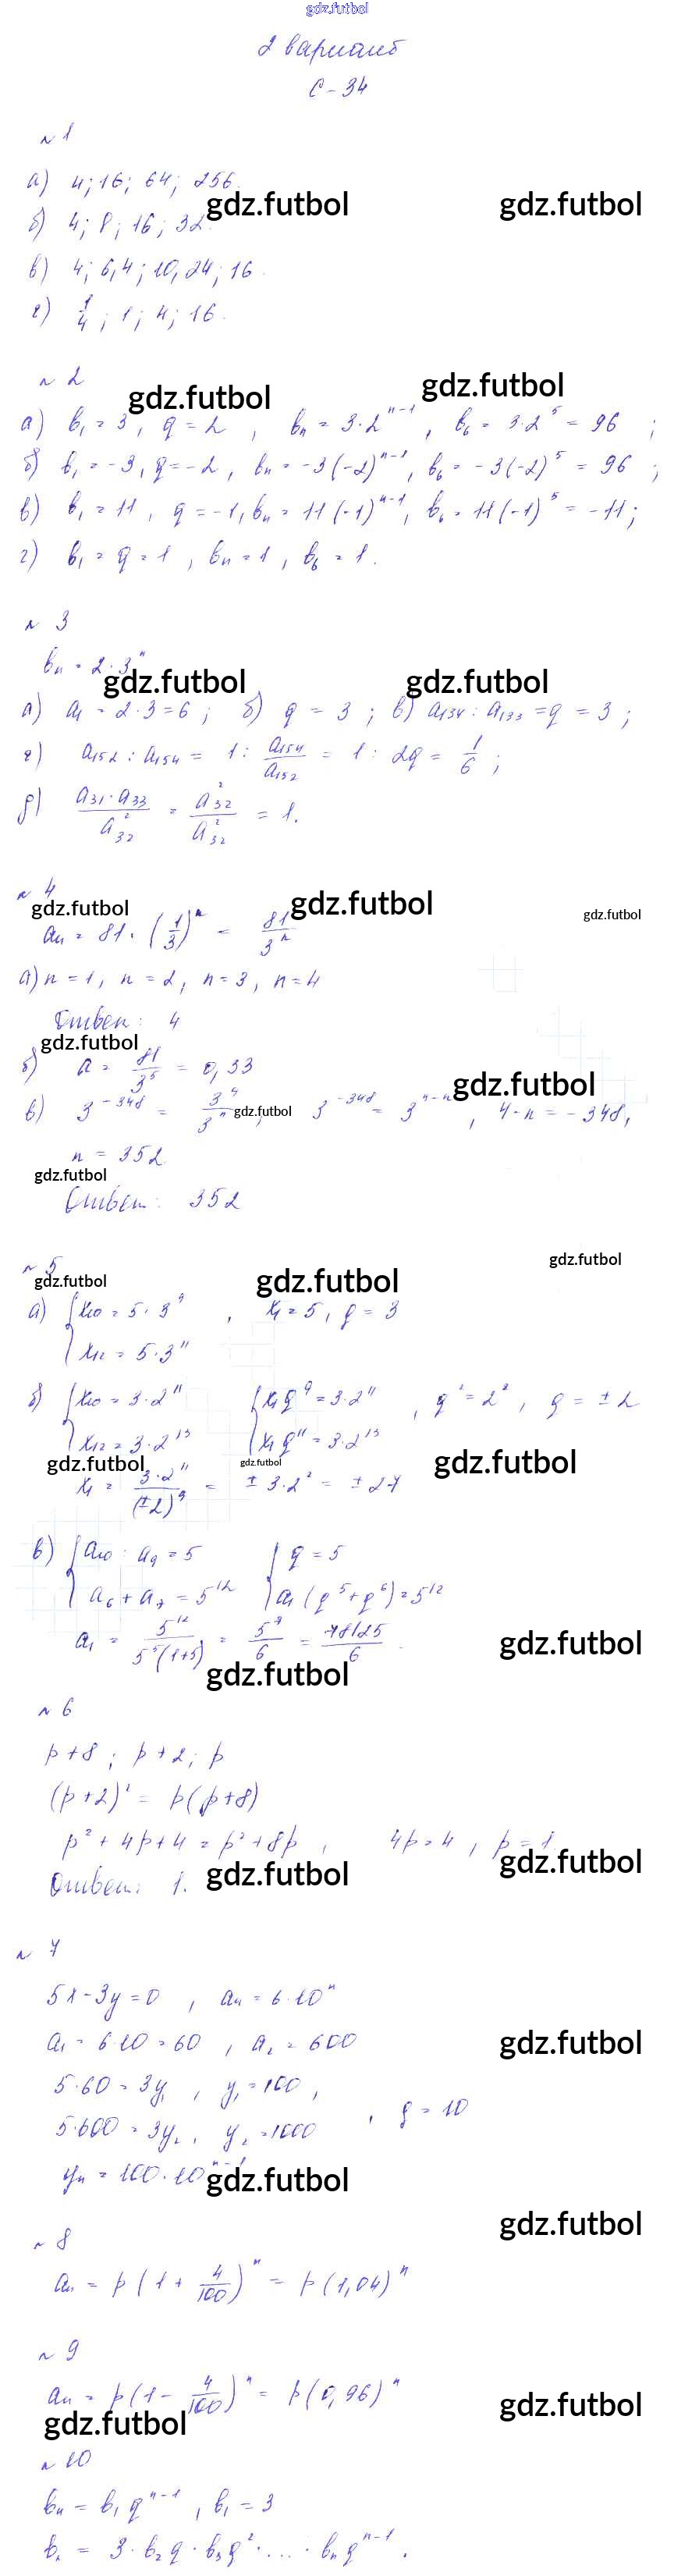 gdz.futbol
2 вариант
С-34
№ 1
а) 4; 16; 64; 256.
gdz.futbol gdz.futbol
б) 4; 8; 16; 32.
в) 4; 6,4; 10,24; 16.
г) 1/4; 1; 4; 16.
№ 2
gdz.futbol gdz.futbol
а) b₁ = 3, q = 2, bₙ = 3·2ⁿ⁻¹, b₆ = 3·2⁵ = 96;
б) b₁ = -3, q = -2, bₙ = -3(-2)ⁿ⁻¹, b₆ = -3(-2)⁵ = 96;
в) b₁ = 11, q = -1, bₙ = 11(-1)ⁿ⁻¹, b₆ = 11(-1)⁵ = -11;
г) b₁ = q = 1, bₙ = 1, b₆ = 1.
№ 3
bₙ = 2·3ⁿ
gdz.futbol gdz.futbol
а) a₁ = 2·3 = 6; б) q = 3; в) a₁₃₄ : a₁₃₃ = q = 3;
г) a₁₅₂ : a₁₅₄ = 1 : a₁₅₄/a₁₅₂ = 1 : 2q = 1/6;
д) a₃₁·a₃₃/a₃₂² = a₃₂²/a₃₂² = 1.
№ 4
gdz.futbol gdz.futbol gdz.futbol
aₙ = 81·(1/3)ⁿ = 81/3ⁿ
а) n = 1, n = 2, n = 3, n = 4
Ответ: 4
gdz.futbol
б) a = 81/3⁵ = 0,33
gdz.futbol
в) 3⁻³⁴⁸ = 3⁴/3ⁿ; 3⁻³⁴⁸ = 3⁴⁻ⁿ, 4-n = -348,
gdz.futbol
n = 352
gdz.futbol
Ответ: 352
№ 5
gdz.futbol
gdz.futbol gdz.futbol
а) { x₁₀ = 5·3⁹, x₁ = 5, q = 3
x₁₂ = 5·3¹¹
б) { x₁₀ = 3·2¹¹ { x₁q⁹ = 3·2¹¹, q² = 2², q = ±2
x₁₂ = 3·2¹³ x₁q¹¹ = 3·2¹³
gdz.futbol gdz.futbol gdz.futbol
x₁ = 3·2¹¹/(±2)⁹ = ±3·2² = ±27
в) { a₁₀ : a₉ = 5 { q = 5
a₆ + a₇ = 5¹² a₁(q⁵+q⁶) = 5¹²
a₁ = 5¹²/5⁵(1+5) = 5⁷/6 = 78125/6.
gdz.futbol
gdz.futbol
№ 6
p+8; p+2; p
(p+2)² = p(p+8)
p² + 4p + 4 = p² + 8p, 4p = 4, p = 1.
gdz.futbol gdz.futbol
Ответ: 1.
№ 7
5x - 3y = 0, aₙ = 6·10ⁿ
a₁ = 6·10 = 60, a₂ = 600
gdz.futbol
5·60 = 3y₁, y₁ = 100,
5·600 = 3y₂, y₂ = 1000, q = 10
yₙ = 100·10ⁿ⁻¹
gdz.futbol
gdz.futbol
№ 8
aₙ = p(1 + 4/100)ⁿ = p(1,04)ⁿ
№ 9
aₙ = p(1 - 4/100)ⁿ = p(0,96)ⁿ
gdz.futbol
gdz.futbol
№ 10
bₙ = b₁qⁿ⁻¹, b₁ = 3
= 3·b₂q·b₃q²·...·bₙqⁿ⁻¹.